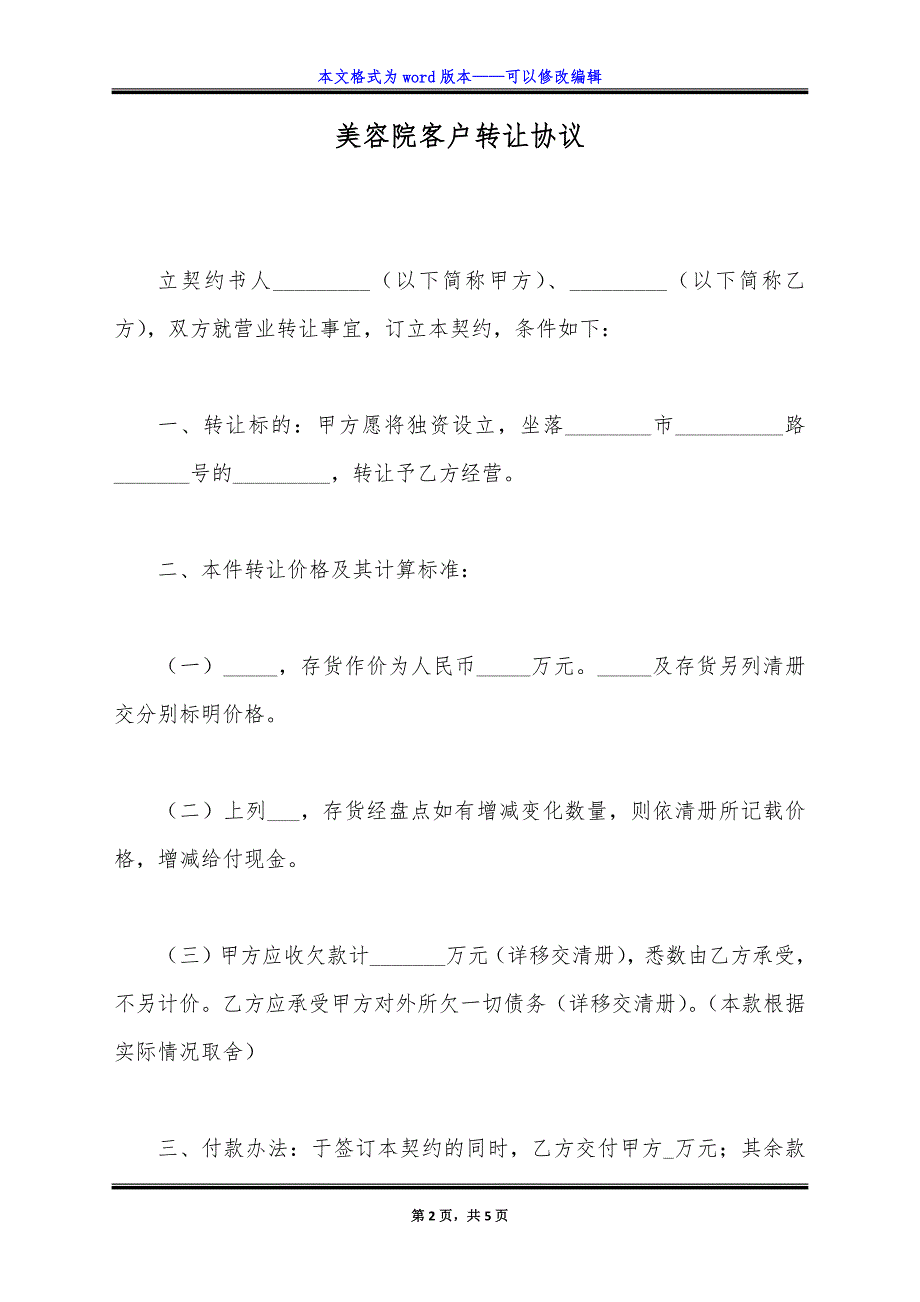 本文格式为 word 版本——可以修改编辑
美容院客户转让协议
立契约书人_________（以下简称甲方）、_________（以下简称乙
方），双方就营业转让事宜，订立本契约，条件如下：
一、转让标的：甲方愿将独资设立，坐落________市__________路
_______号的_________，转让予乙方经营。
二、本件转让价格及其计算标准：
（一）_____，存货作价为人民币_____万元。_____及存货另列清册
交分别标明价格。
（二）上列___，存货经盘点如有增减变化数量，则依清册所记载价
格，增减给付现金。
（三）甲方应收欠款计_______万元（详移交清册），悉数由乙方承受，
不另计价。乙方应承受甲方对外所欠一切债务（详移交清册）。（本款根据
实际情况取舍）
三、付款办法：于签订本契约的同时，乙方交付甲方_万元；其余款
第 2 页，共 5 页